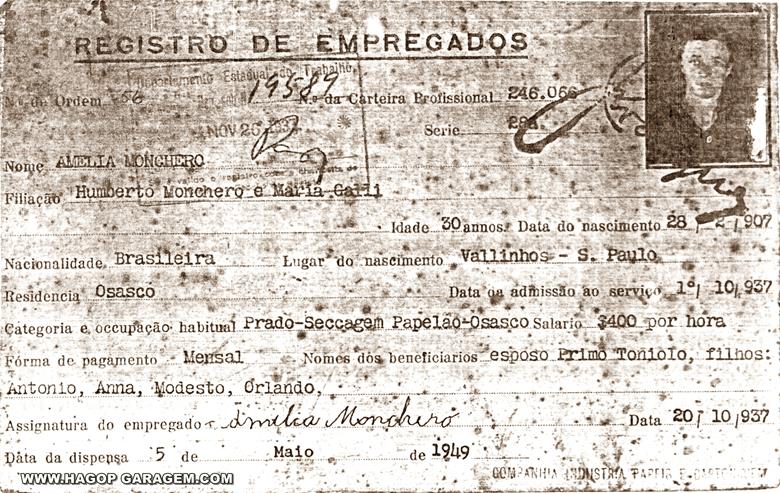 REGISTRO DE EMPREGADOS
Departamento Estadual do Trabalho
19589
N.º de Ordem 56 N.º da Carteira Profissional 246.066
NOV 25 Serie 28a
Nome AMELIA MONCHERO
Filiação Humberto Monchero e Maria Galli
Idade 30 annos. Data do nascimento 28 / 2 / 907
Nacionalidade Brasileira Lugar do nascimento Vallinhos - S. Paulo
Residencia Osasco Data da admissão ao serviço 1º / 10 / 937
Categoria e occupação habitual Prado-Seccagem Papelão-Osasco Salario $400 por hora
Fórma de pagamento Mensal Nomes dos beneficiarios esposo Primo Toniolo, filhos:
Antonio, Anna, Modesto, Orlando,
Assignatura do empregado Amelia Monchero Data 20 / 10 / 937
Data da dispensa 5 de Maio de 1949
WWW.HAGOP GARAGEM.COM COMPANHIA INDUSTRIA PAPEIS E CARTONAGEM